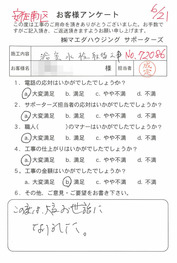 安佐南区
6/21
お客様アンケート
この度は工事のご用命を頂きありがとうございました。お手数ですがご記入頂き、ご返送頂きますようお願い申し上げます。
㈱マエダハウジング サポーターズ
施工内容
No.72086
お客様名
様
担当者
1. 電話の応対はいかがでしたでしょうか?
a 大変満足 b 満足 c やや不満 d 不満
2. サポーターズ担当者の応対はいかがでしたでしょうか?
a 大変満足 b 満足 c やや不満 d 不満
3. 職人( )のマナーはいかがでしたでしょうか?
a 大変満足 b 満足 c やや不満 d 不満
4. 工事の仕上がりはいかがでしたでしょうか?
a 大変満足 b 満足 c やや不満 d 不満
5. 工事の金額はいかがでしたでしょうか?
a 大変満足 b 満足 c やや不満 d 不満
6. その他、ご意見・ご要望をお書き下さい。
この度は大変お世話に
なりました。